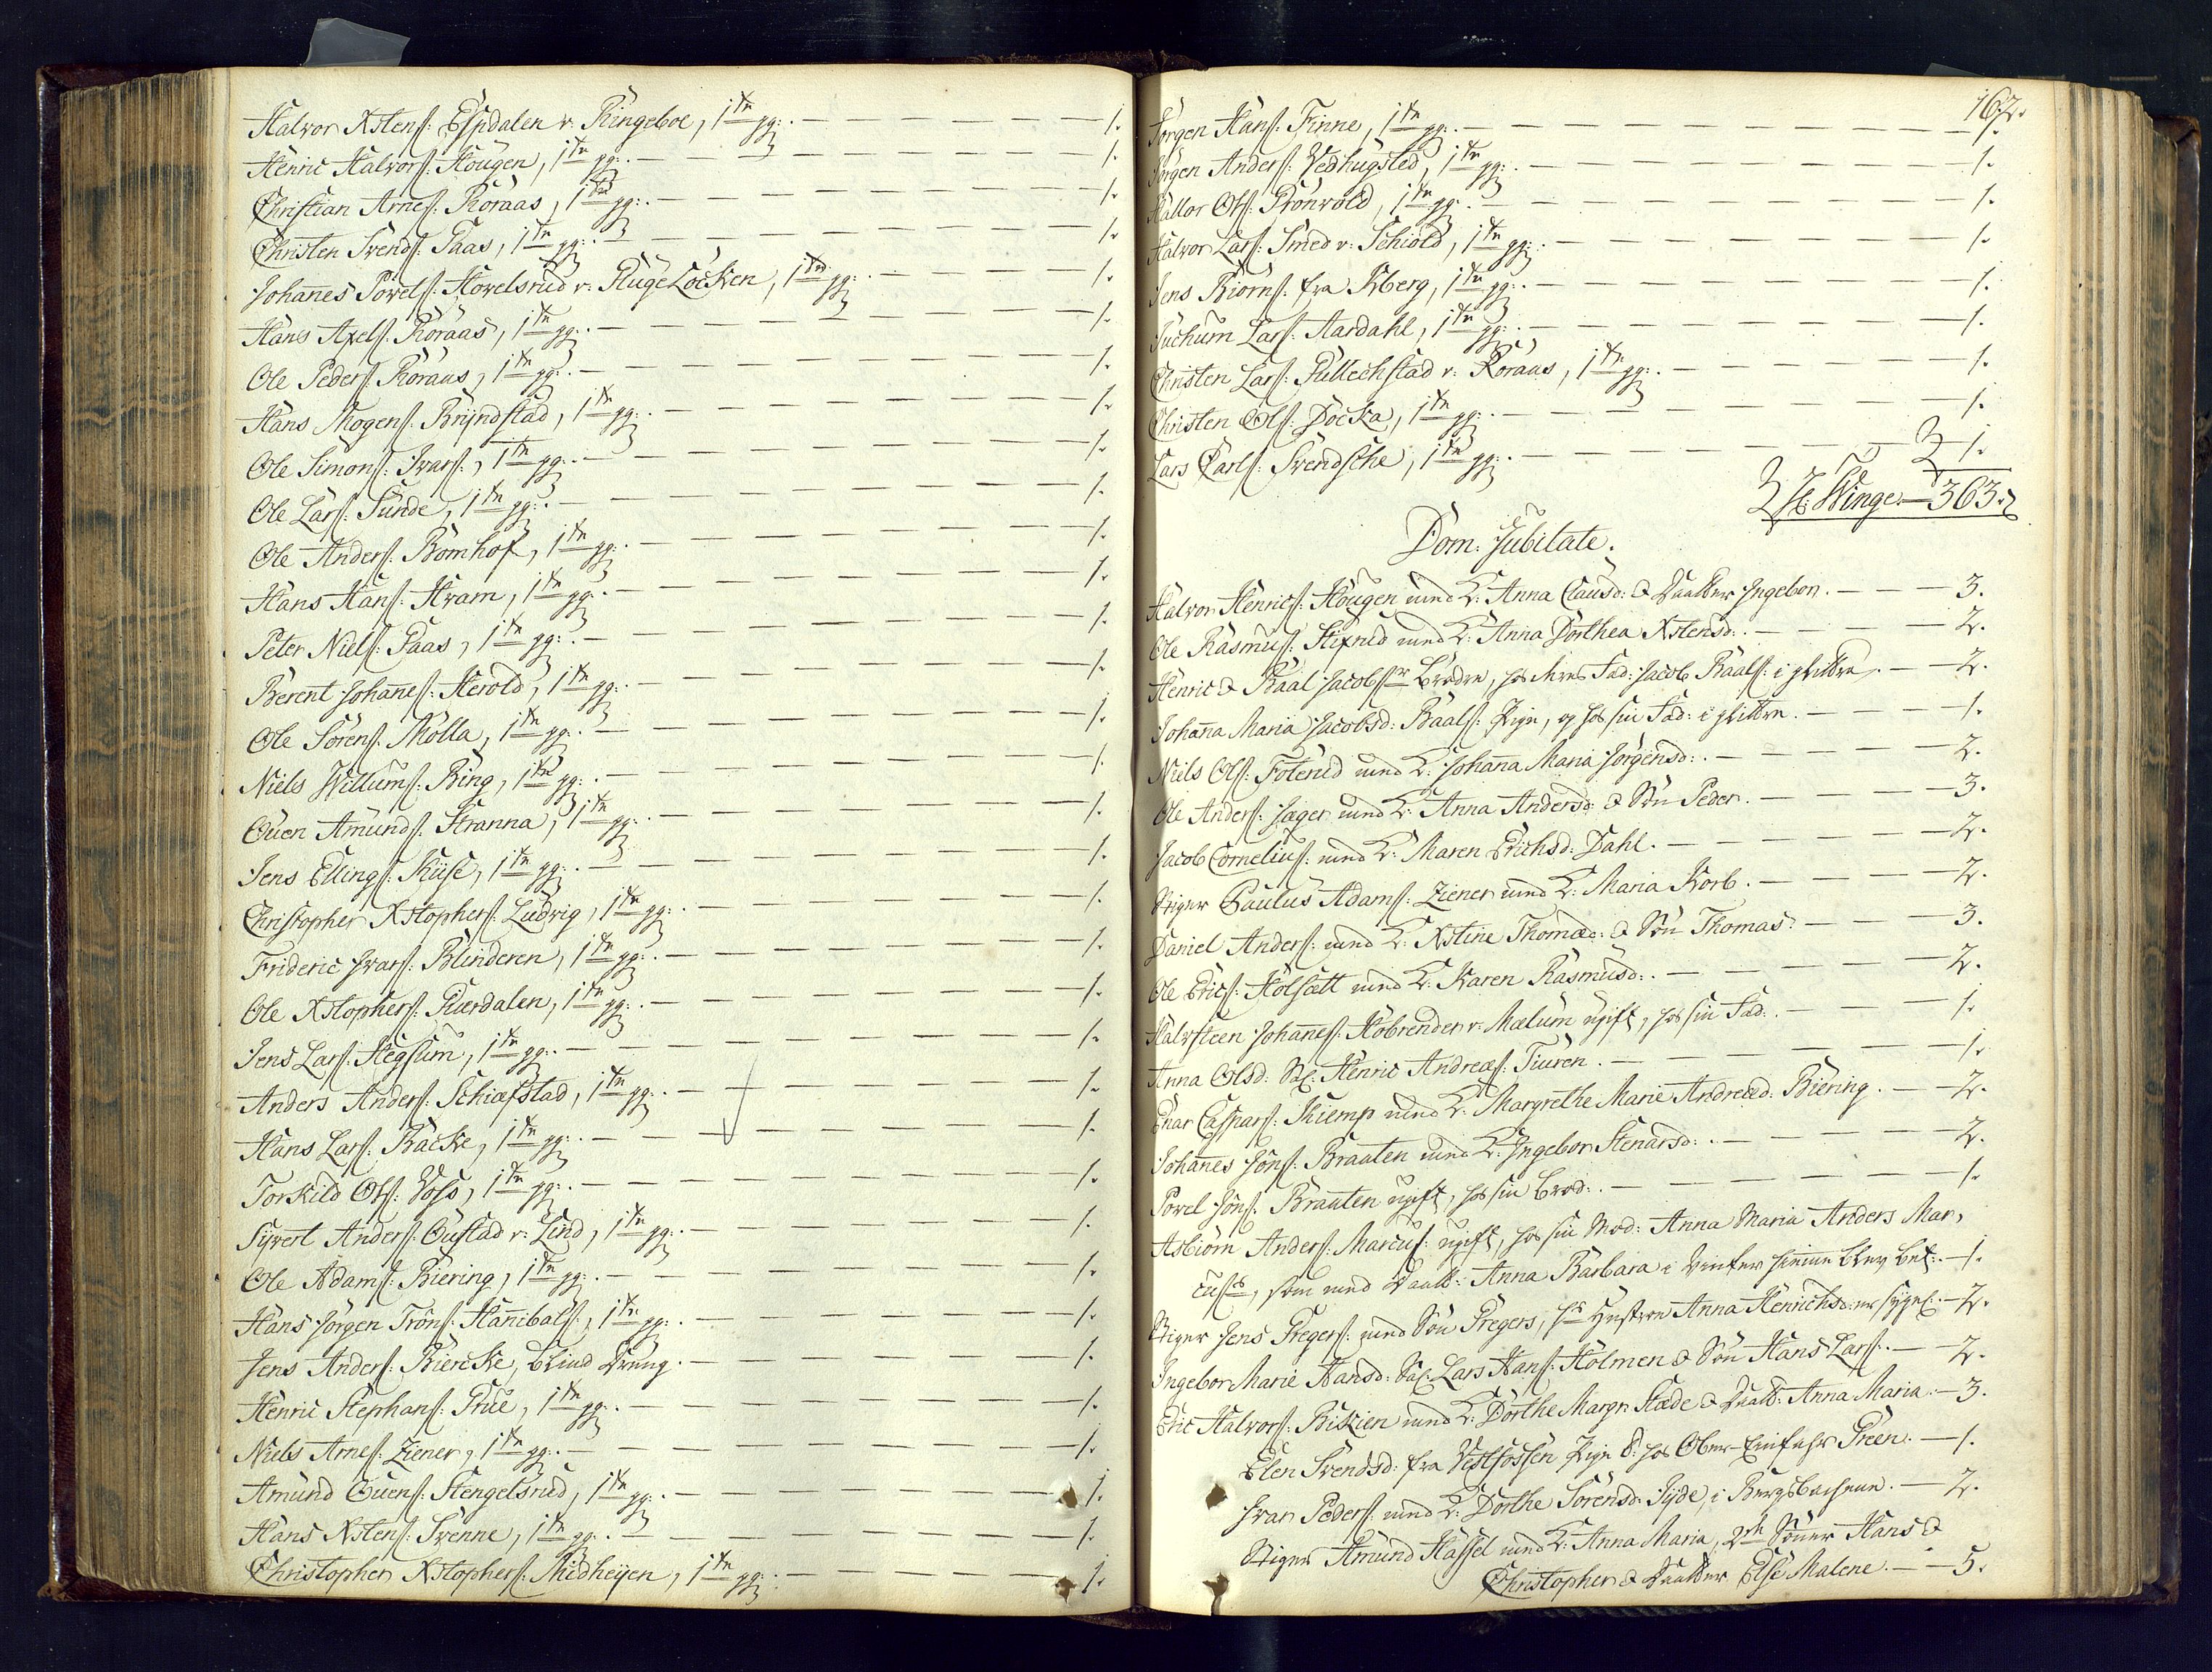 Halvor Xstens: Espdalen v. Ringeboe, 1ste gg: — 1.
Henric Halvors: Hougen, 1ste gg: — 1.
Christian Arnes: Röraas, 1ste gg: — 1.
Christen Svends: Paas, 1ste gg: — 1.
Johannes Povels: Hovelsrud v. Fluge Löcken, 1ste gg: — 1.
Hans Axels: Röraas, 1ste gg: — 1.
Ole Peders: Röraas, 1ste gg: — 1.
Hans Mogens: Bryndstad, 1ste gg: — 1.
Ole Simons: Ivars:, 1ste gg: — 1.
Ole Lars: Sunde, 1ste gg: — 1.
Ole Anders: Bomhof, 1ste gg: — 1.
Hans Hans: Hvam, 1ste gg: — 1.
Peter Niels: Paas, 1ste gg: — 1.
Berent Johannes: Herold, 1ste gg: — 1.
Ole Sörens: Molla, 1ste gg: — 1.
Niels Willums: Ring, 1ste gg: — 1.
Ouen Amunds: Stranna, 1ste gg: — 1.
Jens Ellings: Kuse, 1ste gg: — 1.
Christopher Xstophers: Ludvig, 1ste gg: — 1.
Frideric Ivars: Blinderen, 1ste gg: — 1.
Ole Xstophers: Guerdalen, 1ste gg: — 1.
Jens Lars: Hegsum, 1ste gg: — 1.
Anders Anders: Schiefstad, 1ste gg: — 1.
Hans Lars: Backe, 1ste gg: — 1.
Torkild Ols: Voss, 1ste gg: — 1.
Syvert Anders: Oustad v. Lind, 1ste gg: — 1.
Ole Adams: Biering, 1ste gg: — 1.
Hans Jörgen Tröns: Hannibals:, 1ste gg: — 1.
Jens Anders: Biercke, blind Dreng. — 1.
Henric Stephans: Prüe, 1ste gg: — 1.
Niels Arnes: Ziener, 1ste gg: — 1.
Amund Ouens: Stengelsrud, 1ste gg: — 1.
Hans Xstens: Svenne, 1ste gg: — 1.
Christopher Xstophers: Midheyen, 1ste gg: — 1.
162.
Jörgen Hans: Finne, 1ste gg: — 1.
Jörgen Anders: Vedhugsted, 1ste gg: — 1.
Hallor Ols: Grönvold, 1ste gg: — 1.
Halvor Lars: Smed v. Schiöld, 1ste gg: — 1.
Jens Biörns: fra Kberg, 1ste gg: — 1.
Juchum Lars: Aardahl, 1ste gg: — 1.
Christen Lars: Gullechstad v. Röraas, 1ste gg: — 1.
Christen Ols: Docka, 1ste gg: — 1.
Lars Carls: Svendsche, 1ste gg: — 1.
Winge — 363.
Dom: Jubilate.
Halvor Henrics: Hougen med K: Anna Clausd: & Daatter Ingebor. — 3.
Ole Rasmus: Stixrud med K: Anna Dorthea Xstensd: — 2.
Henric & Baal Jacobs: Brödre, hos deres Fad: Jacob Baals: i Hütten. — 2.
Johanna Maria Jacobsd: Baals: Pige, og hos sin Fad: i Hütten. — 1.
Niels Ols: Foterud med K: Johana Maria Jörgensd: — 2.
Ole Anders: Jæger med K: Anna Andersd: & Sön Peder. — 3.
Jacob Cornelius: med K: Maren Erichsd: Dahl. — 2.
Stiger Paulus Adams: Ziener med K: Maria Korb. — 2.
Daniel Anders: med K: Xstine Thomæd: & Sön Thomas. — 3.
Ole Erics: Holsætt med K: Karen Rasmusd: — 2.
Halvsteen Johannes: Höbrender v. Mælum ugift, hos sin Fad: — 1.
Anna Olsd: Sal: Henric Andreæs: Tiuren. — 1.
Enar Caspars: Kiemp med K: Margrethe Marie Andreæd: Biering. — 2.
Johannes Jöns: Braaten med K: Ingebor Stenarsd: — 2.
Povel Jöns: Braaten ugift, hos sin Brod: — 1.
Asbiörn Anders: Marcus: ugift, hos sin Mod: Anna Maria Anders Mar-
cuses, som med Daatt: Anna Barbara i Vinter hiemme blev bet: — 1.
Stiger Jens Gregers: med Sön Gregers, hs Hustroe Anna Henrichsd: er sygel: — 2.
Ingebor Marie Hansd: Sal: Lars Hans: Holmen & Sön Hans Lars: — 2.
Eric Halvors: Biskien med K: Dorthe Margr: Stæde & Daatt: Anna Maria. — 3.
Elen Svendsd: fra Vestfossen Pige d: hos Ober-Einfahr Green. — 1.
Ivar Peders: med K: Dorthe Sörensd: Syde, i Bergsbachene. — 2.
Stiger Amund Hassel med K: Anna Maria, 2de Sönner Hans &
Christopher & Daatter Else Malene. — 5.